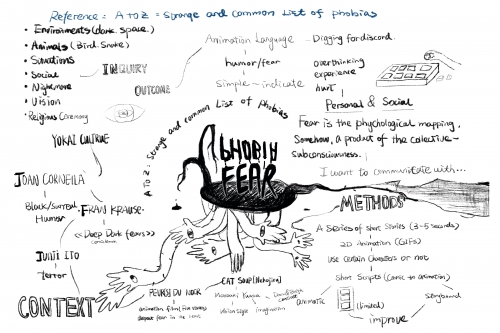 Reference: A to Z = strange and common List of phobias
• Environments (dark. space.)
• Animals (Bird. Snake)
• Situations
• Social
• Nightmare
• Vision
• Religious Ceremony
INQUIRY
OUTCOME
Animation Language
humor/fear
Simple - indicate
Digging for discord.
overthinking
experience
hurt
Personal & Social
Fear is the phychological mapping,
Somehow, a product of the collective~
Subconsciousness.
I want to communicate with...
YOKAI CULTRUE
A to Z = Strange and common List of phobias
PHOBIA
FEAR
JOAN CORNELLA
Black/surreal
Humor
FRAN KRAUSE.
<<Deep Dark fears>>
JUNJI ITO
terror
CONTEXT
PEUR(S) DU NOIR
animation film
CAT SOUP [Nekojiru]
Vision style
imagination
METHODS
A Series of Short Stories (3-5 seconds)
2D Animation (GIFs)
Use Certain Characters or not
Short Scripts (Comic to animation)
animatic
(limited)
storyboard
improve